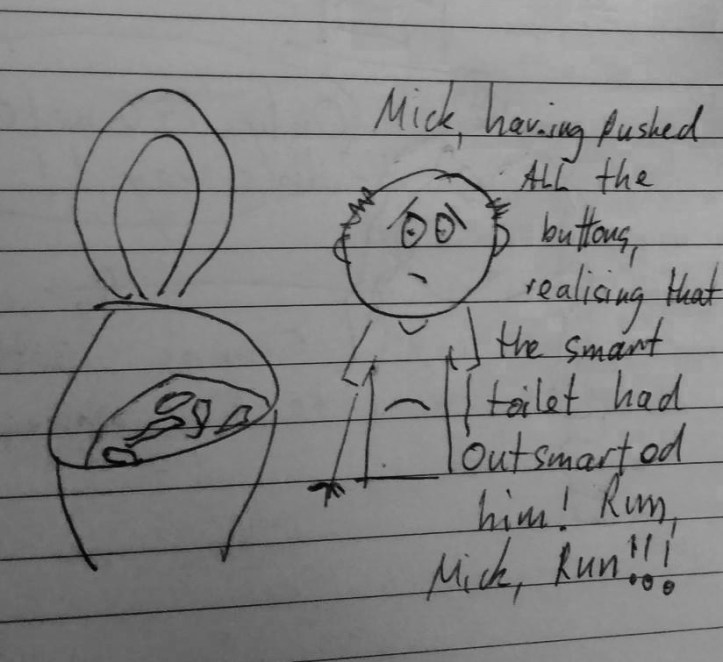 Mick, having pushed
ALL the
buttons,
realising that
the smart
toilet had
Outsmarted
him! Run,
Mick, Run!!!